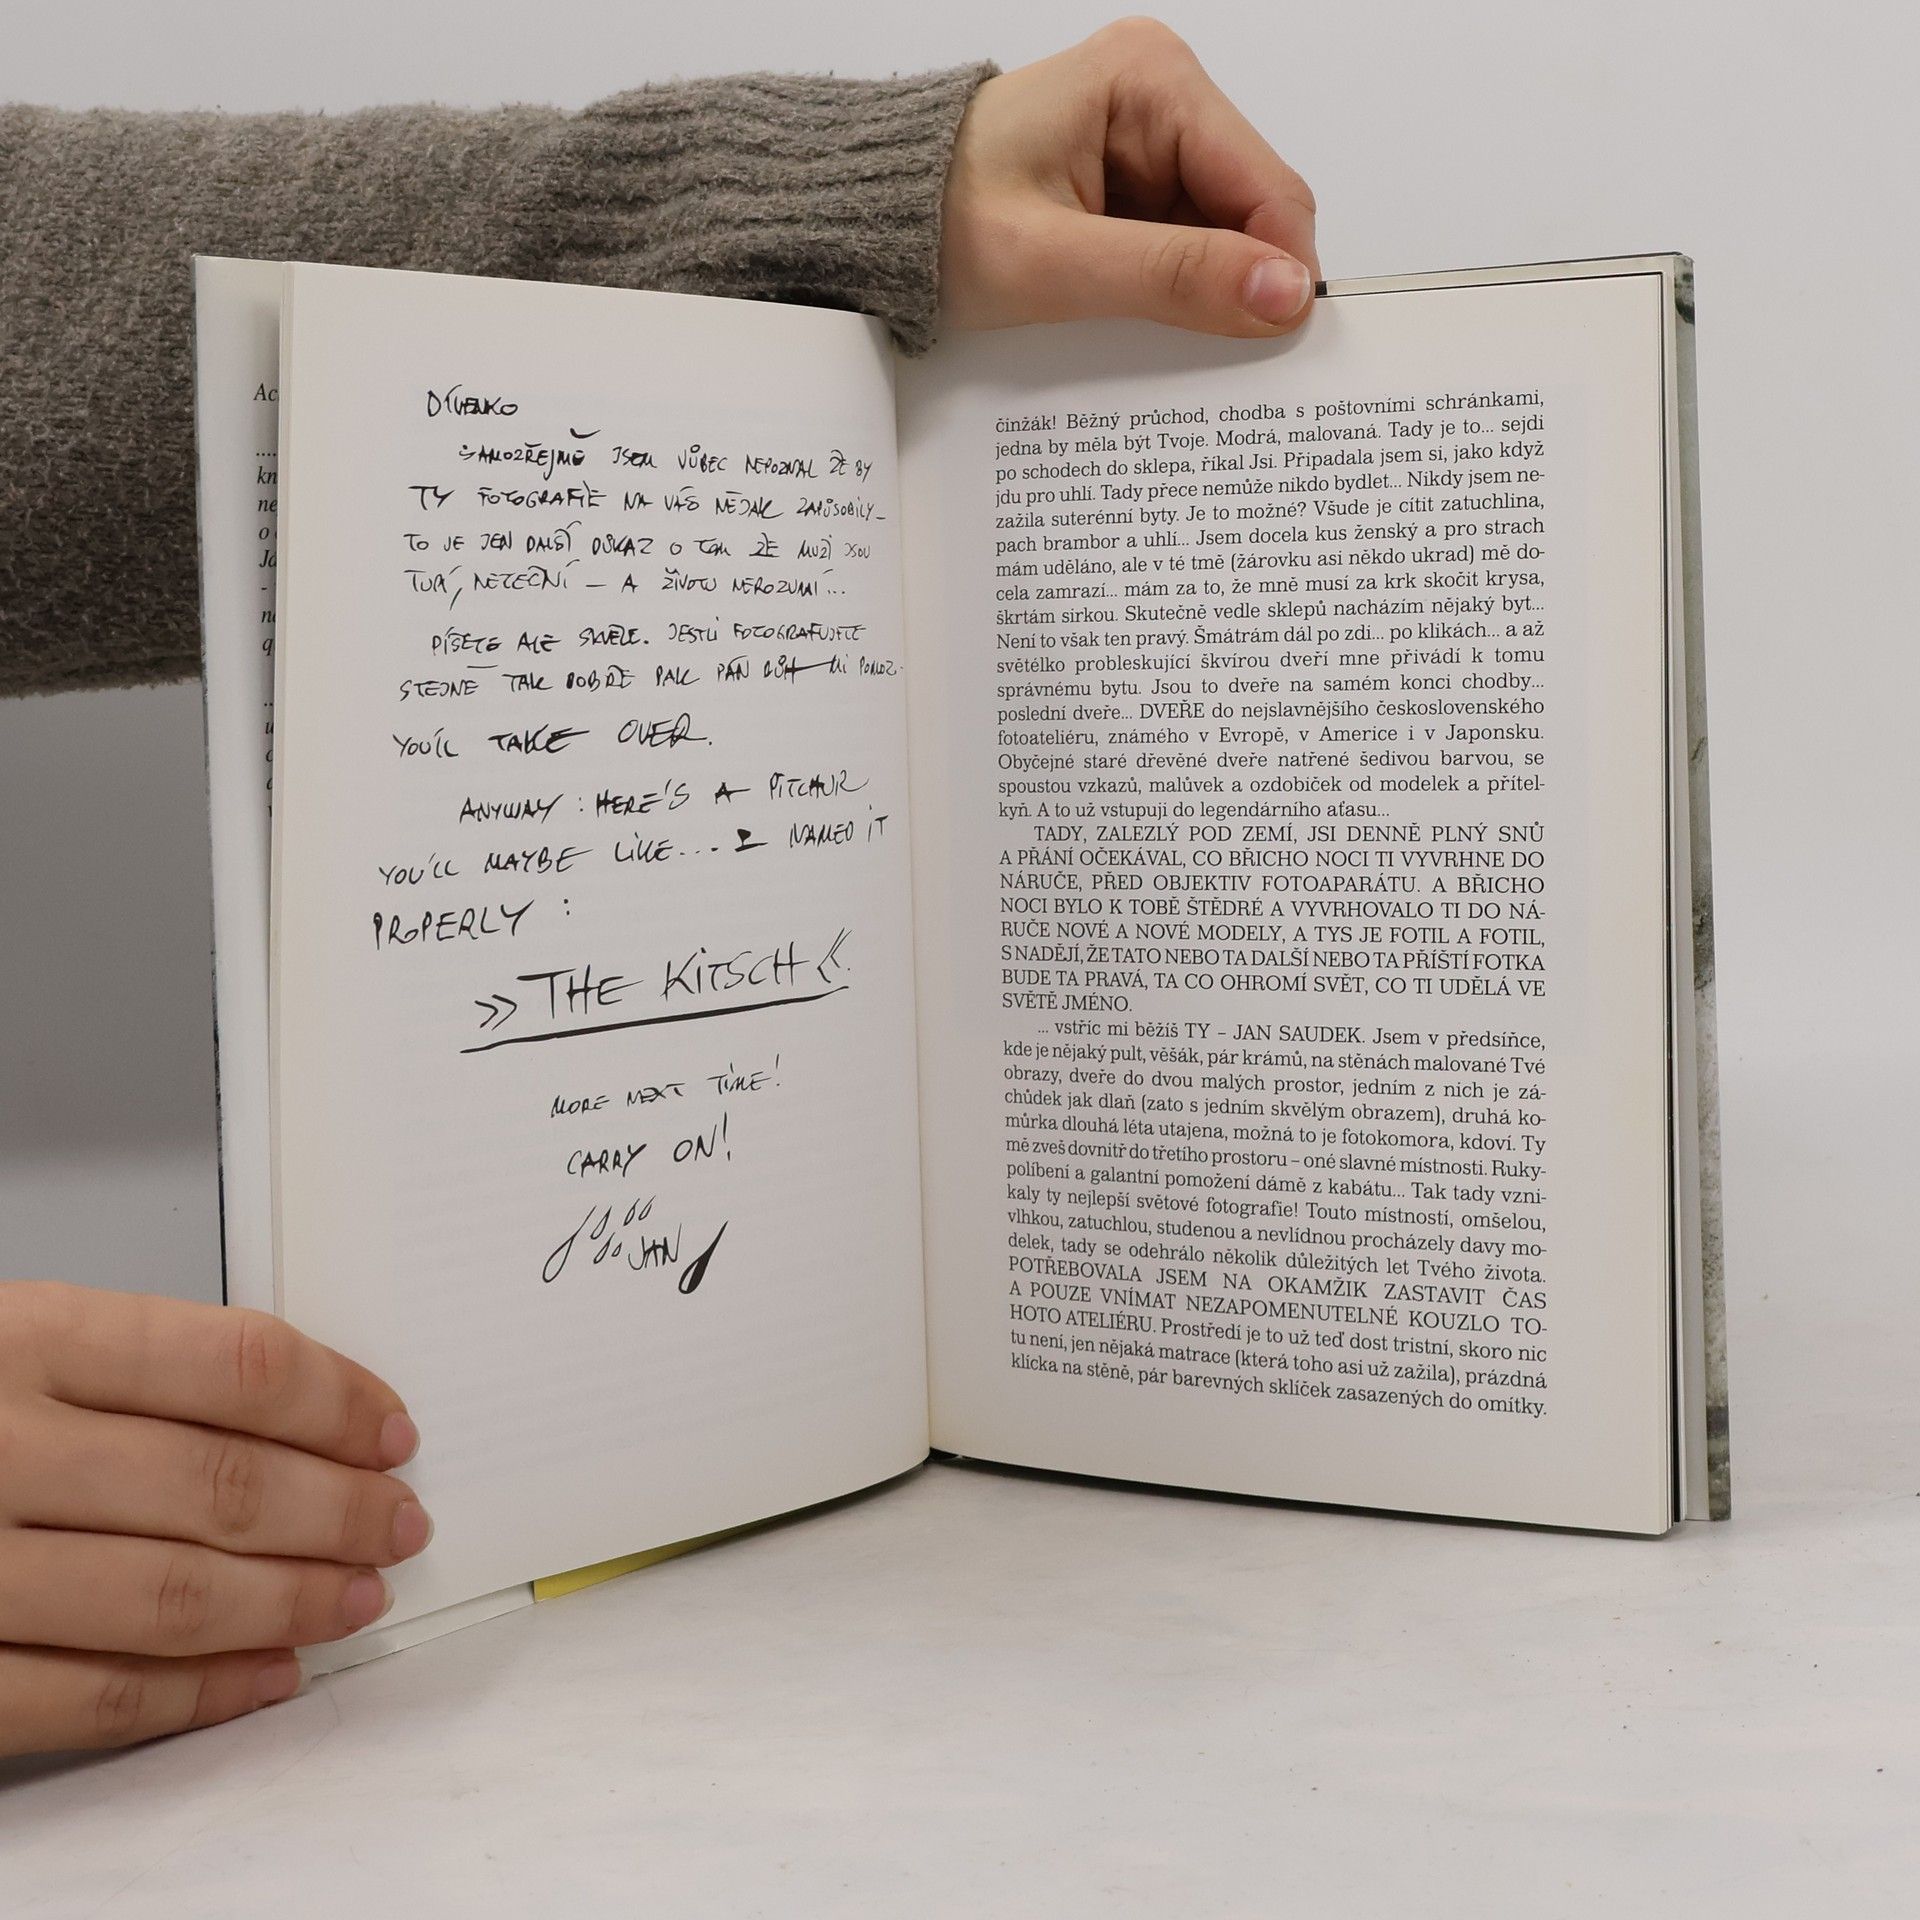 Ac
kn
ne
o
Já
DÍVENKO
SAMOZŘEJMĚ JSEM VŮBEC NEPOZNAL ŽE BY
TY FOTOGRAFIE NA VÁS NĚJAK ZAPŮSOBILY_
TO JE JEN DALŠÍ DŮKAZ O TOM ŽE MUŽI JSOU
TUPÍ, NETEČNÍ – A ŽIVOTU NEROZUMÍ...
PÍŠETE ALE SKVĚLE. JESTLI FOTOGRAFUJETE
STEJNĚ TAK DOBŘE PAK PÁN BŮH MI POMOZ.
YOU'LL TAKE OVER.
ANYWAY : HERE'S A PITCHUR
YOU'LL MAYBE LIKE... I NAMED IT
PROPERLY :
» THE KITSCH «.
MORE NEXT TIME!
CARRY ON!
JAN
činžák! Běžný průchod, chodba s poštovními schránkami,
jedna by měla být Tvoje. Modrá, malovaná. Tady je to... sejdi
po schodech do sklepa, říkal Jsi. Připadala jsem si, jako když
jdu pro uhlí. Tady přece nemůže nikdo bydlet... Nikdy jsem ne-
zažila suterénní byty. Je to možné? Všude je cítit zatuchlina,
pach brambor a uhlí... Jsem docela kus ženský a pro strach
mám uděláno, ale v té tmě (žárovku asi někdo ukrad) mě do-
cela zamrazí... mám za to, že mně musí za krk skočit krysa,
škrtám sirkou. Skutečně vedle sklepů nacházím nějaký byt...
Není to však ten pravý. Šmátrám dál po zdi... po klikách... a až
světélko probleskující škvírou dveří mne přivádí k tomu
správnému bytu. Jsou to dveře na samém konci chodby...
poslední dveře... DVEŘE do nejslavnějšího československého
fotoateliéru, známého v Evropě, v Americe i v Japonsku.
Obyčejné staré dřevěné dveře natřené šedivou barvou, se
spoustou vzkazů, malůvek a ozdobiček od modelek a přítel-
kyň. A to už vstupuji do legendárního aťasu...
TADY, ZALEZLÝ POD ZEMÍ, JSI DENNĚ PLNÝ SNŮ
A PŘÁNÍ OČEKÁVAL, CO BŘICHO NOCI TI VYVRHNE DO
NÁRUČE, PŘED OBJEKTIV FOTOAPARÁTU. A BŘICHO
NOCI BYLO K TOBĚ ŠTĚDRÉ A VYVRHOVALO TI DO NÁ-
RUČE NOVÉ A NOVÉ MODELY, A TYS JE FOTIL A FOTIL,
S NADĚJÍ, ŽE TATO NEBO TA DALŠÍ NEBO TA PŘÍŠTÍ FOTKA
BUDE TA PRAVÁ, TA CO OHROMÍ SVĚT, CO TI UDĚLÁ VE
SVĚTĚ JMÉNO.
... vstříc mi běžíš TY – JAN SAUDEK. Jsem v předsíňce,
kde je nějaký pult, věšák, pár krámů, na stěnách malované Tvé
obrazy, dveře do dvou malých prostor, jedním z nich je zá-
chůdek jak dlaň (zato s jedním skvělým obrazem), druhá ko-
můrka dlouhá léta utajena, možná to je fotokomora, kdoví. Ty
mě zveš dovnitř do třetího prostoru – oné slavné místnosti. Ruky-
políbení a galantní pomožení dámě z kabátu... Tak tady vzni-
kaly ty nejlepší světové fotografie! Touto místností, omšelou,
vlhkou, zatuchlou, studenou a nevlídnou procházely davy mo-
delek, tady se odehrálo několik důležitých let Tvého života.
POTŘEBOVALA JSEM NA OKAMŽIK ZASTAVIT ČAS
A POUZE VNÍMAT NEZAPOMENUTELNÉ KOUZLO TO-
HOTO ATELIÉRU. Prostředí je to už teď dost tristní, skoro nic
tu není, jen nějaká matrace (která toho asi už zažila), prázdná
klícka na stěně, pár barevných sklíček zasazených do omítky.